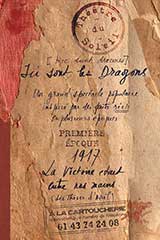 Théâtre
du
Soleil
[Hic sunt dracones]
Ici sont les Dragons
Un grand spectacle populaire
inspiré par des faits réels
en plusieurs époques
PREMIÈRE
ÉPOQUE
1917
La Victoire était
entre nos mains
À LA CARTOUCHERIE
01 43 74 24 08